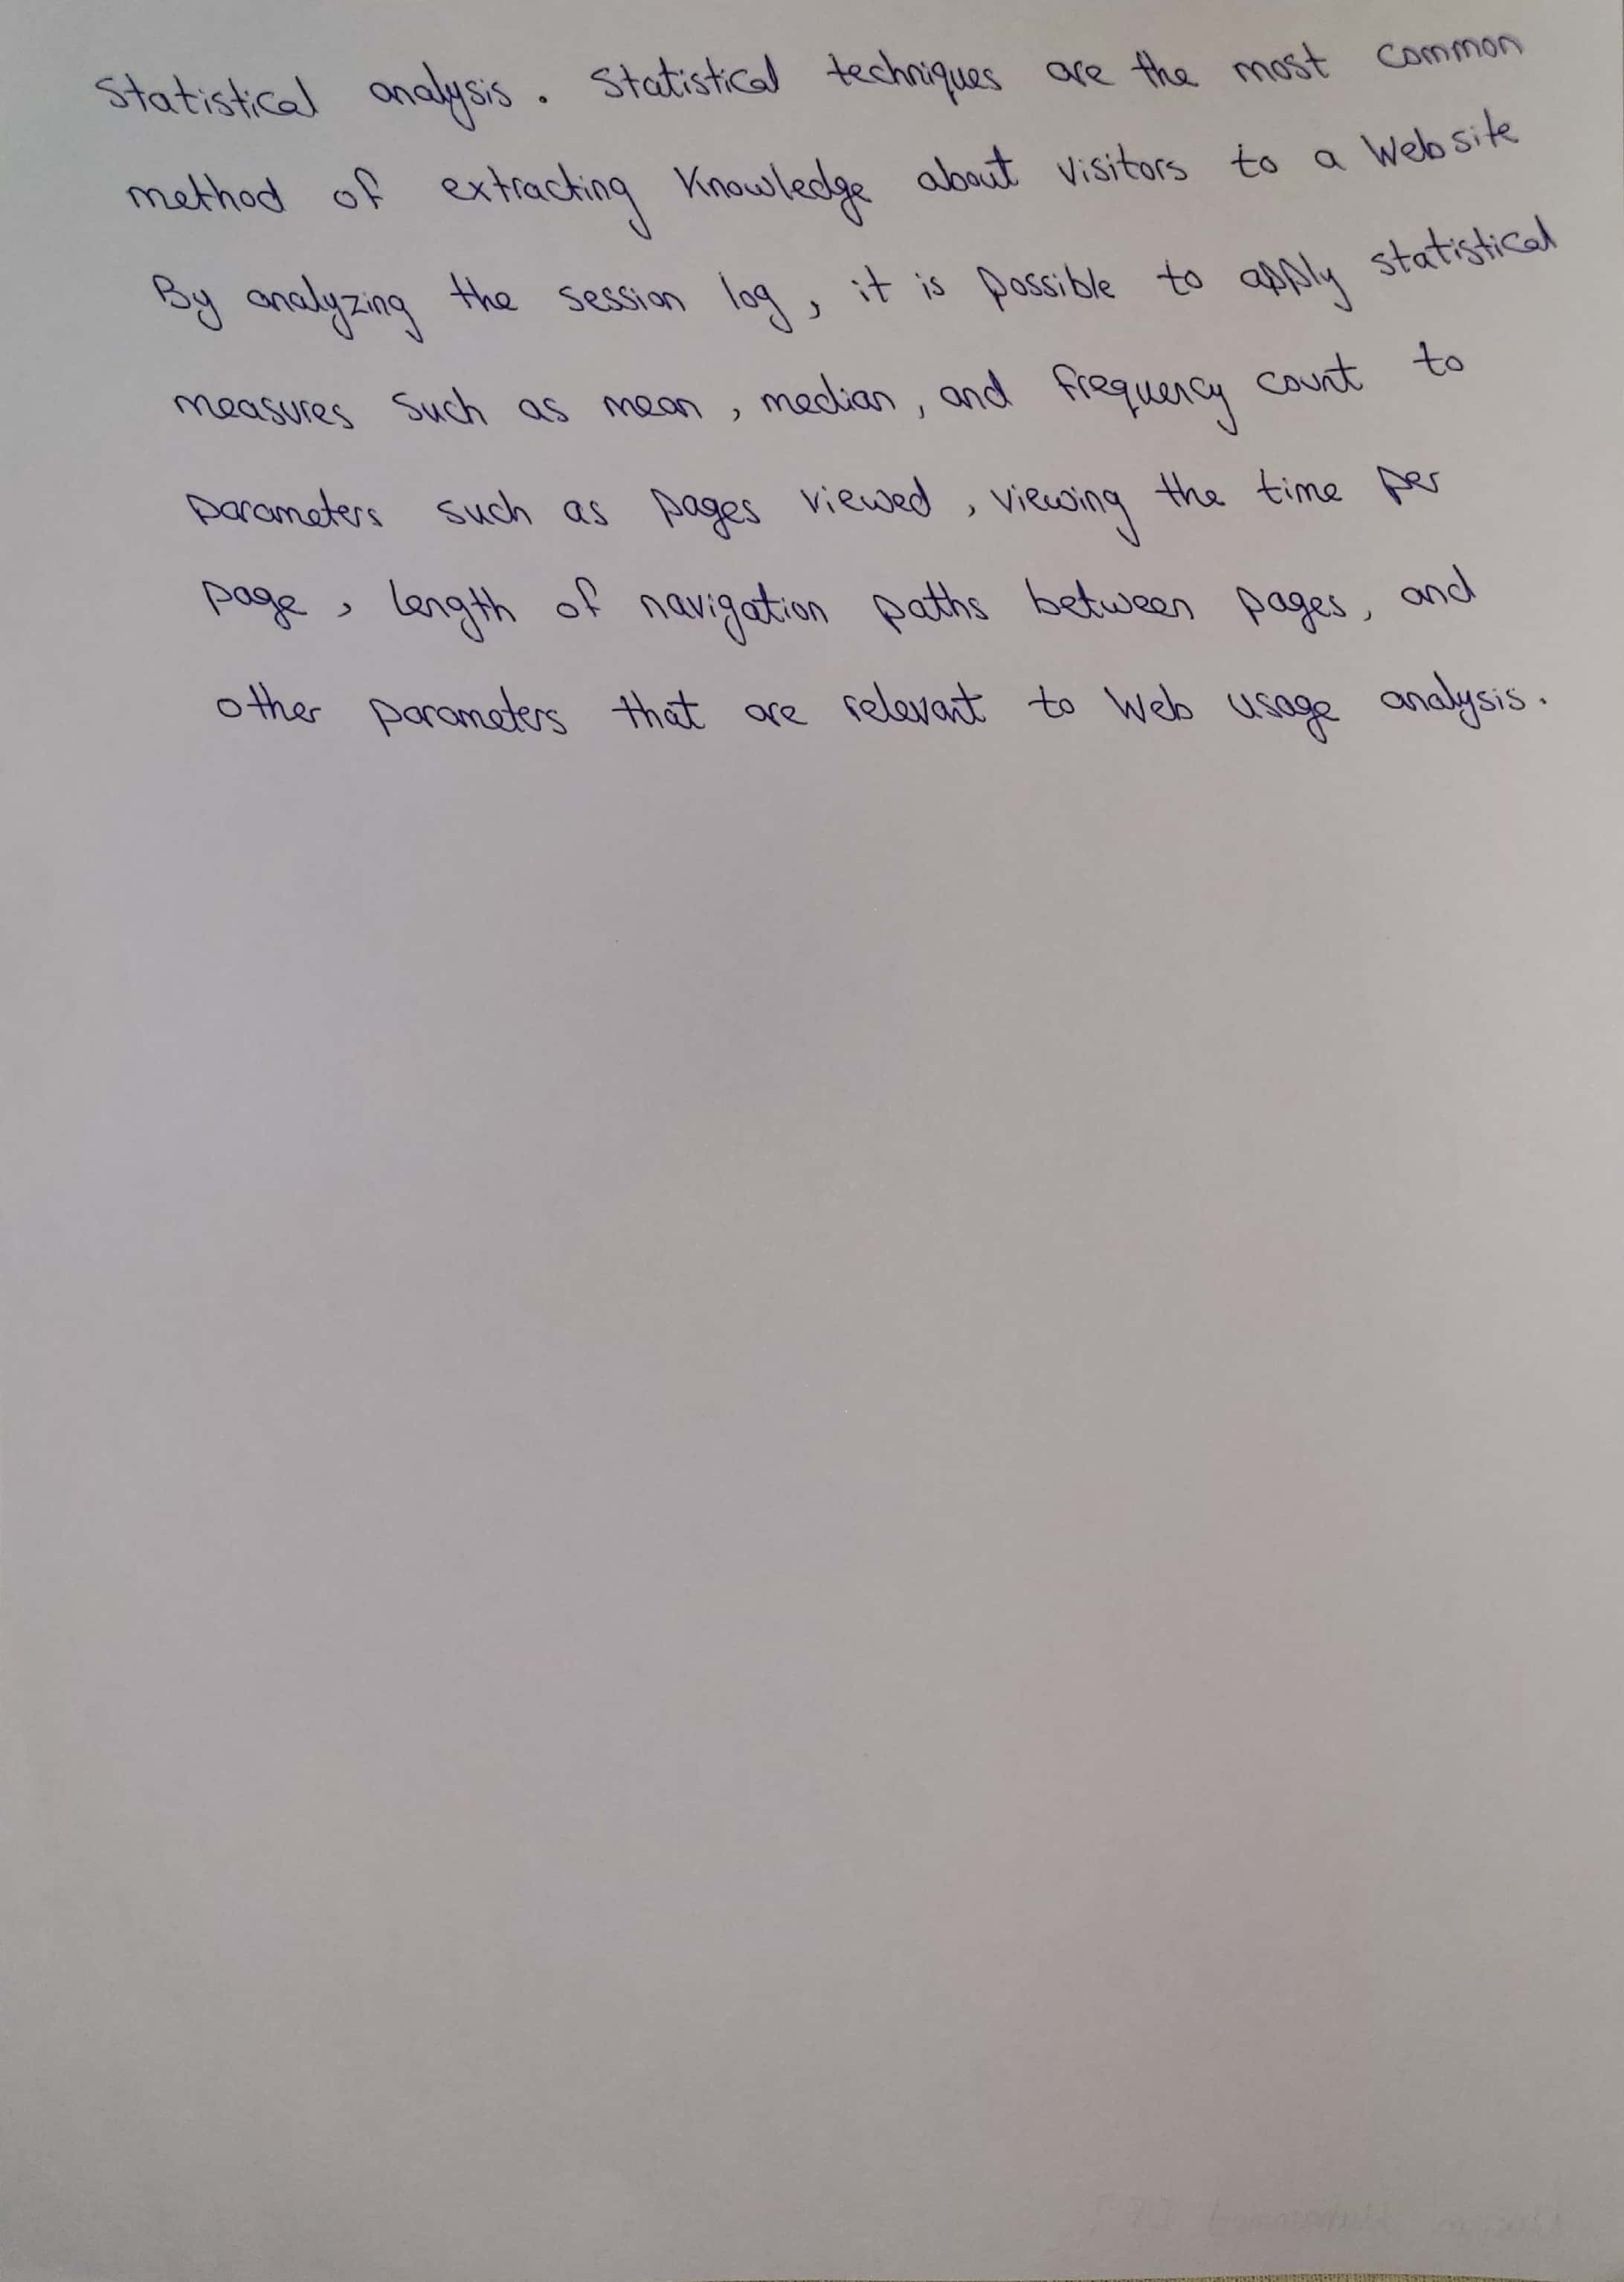 Statistical analysis. Statistical techniques are the most common
method of extracting Knowledge about visitors to a Website
By analyzing the session log, it is possible to apply statistical
measures such as mean, median, and frequency count to
parameters such as pages viewed, viewing the time per
page, length of navigation paths between pages, and
other parameters that are relevant to Web usage analysis.